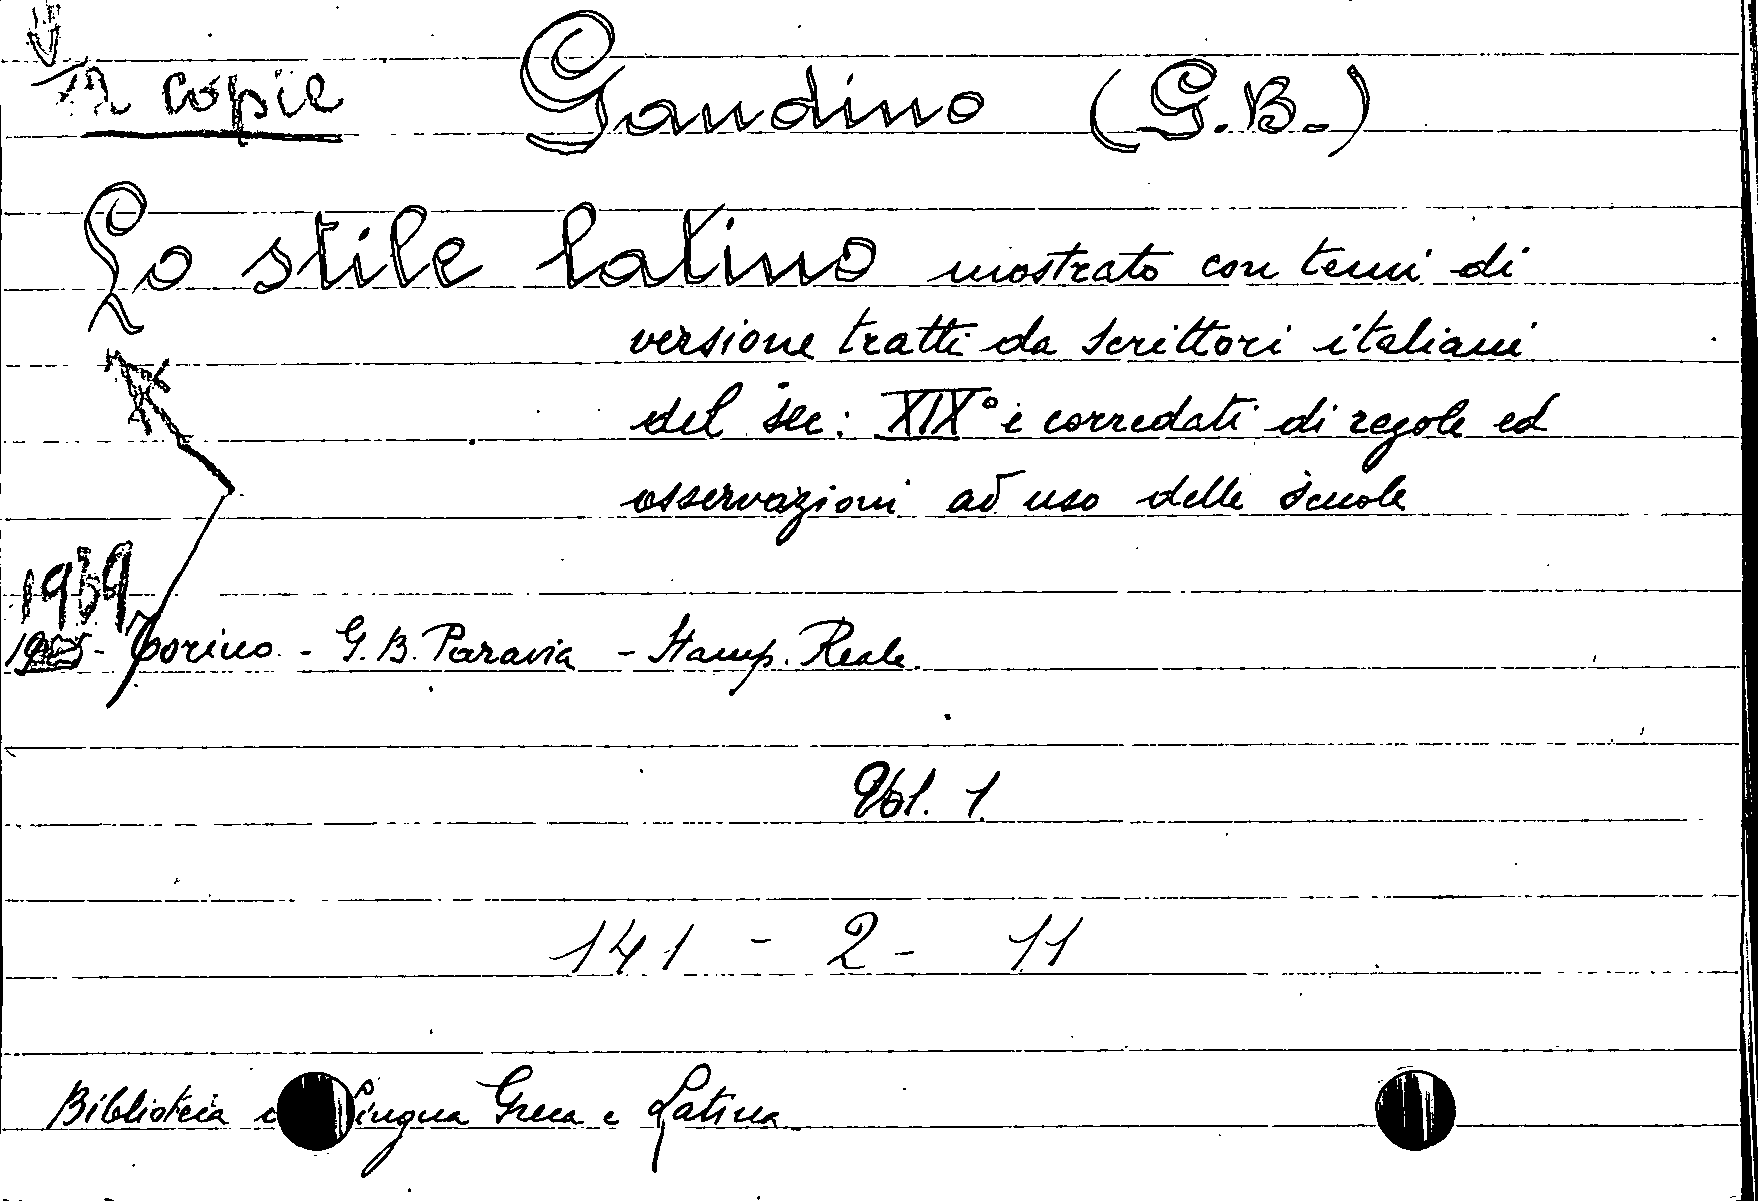 copie
Gandino (G.B.)
Lo stile latino mostrato con temi di
versione tratti da scrittori italiani
del sec: XIX° e corredati di regole ed
osservazioni ad uso delle scuole
1939
Torino - G.B. Paravia - Stamp. Reale.
Vol. 1.
141 - 2 - 11
Biblioteca Lingua Greca e Latina